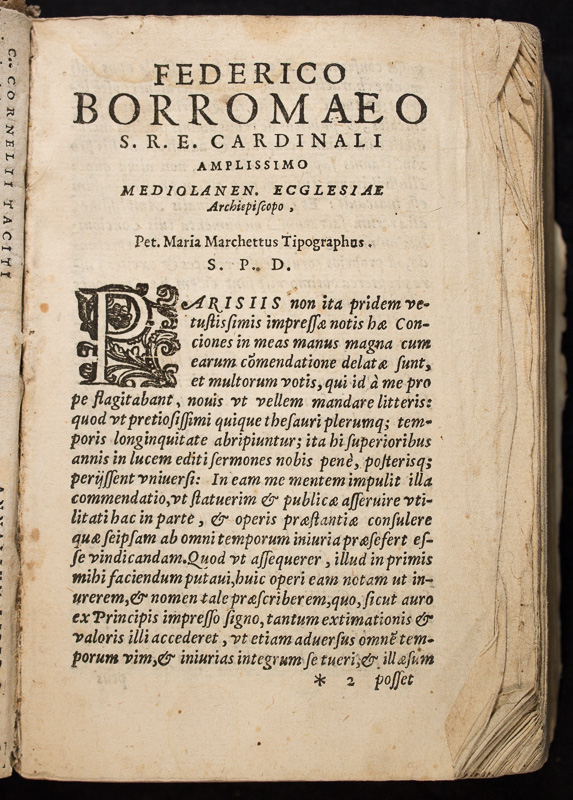 FEDERICO
BORROMAEO
S. R. E. CARDINALI
AMPLISSIMO
MEDIOLANEN. ECGLESIAE
Archiepiſcopo,
Pet. Maria Marchettus Tipographus.
S. P. D.
PARISIIS non ita pridem ve-
tuſtiſsimis impreſſæ notis hæ Con-
ciones in meas manus magna cum
earum cõmendatione delatæ ſunt,
et multorum votis, qui id à me pro
pe flagitabant, nouis vt vellem mandare litteris:
quod vt pretioſiſſimi quique theſauri plerumq; tem-
poris longinquitate abripiuntur; ita hi ſuperioribus
annis in lucem editi ſermones nobis penè, poſterisq;
perijſſent vniuerſi: In eam me mentem impulit illa
commendatio, vt ſtatuerim & publicæ aſſeruire vti-
litati hac in parte, & operis præſtantiæ conſulere
quæ ſeipſam ab omni temporum iniuria præſefert eſ-
ſe vindicandam. Quod vt aſſequerer, illud in primis
mihi faciendum putaui, huic operi eam notam ut in-
urerem, & nomen tale præſcriberem, quo, ſicut auro
ex Principis impreſſo ſigno, tantum extimationis &
valoris illi accederet, vt etiam aduerſus omnẽ tem-
porum vim, & iniurias integrum ſe tueri, & illæſum
* 2 poſſet
C. CORNELII TACITI